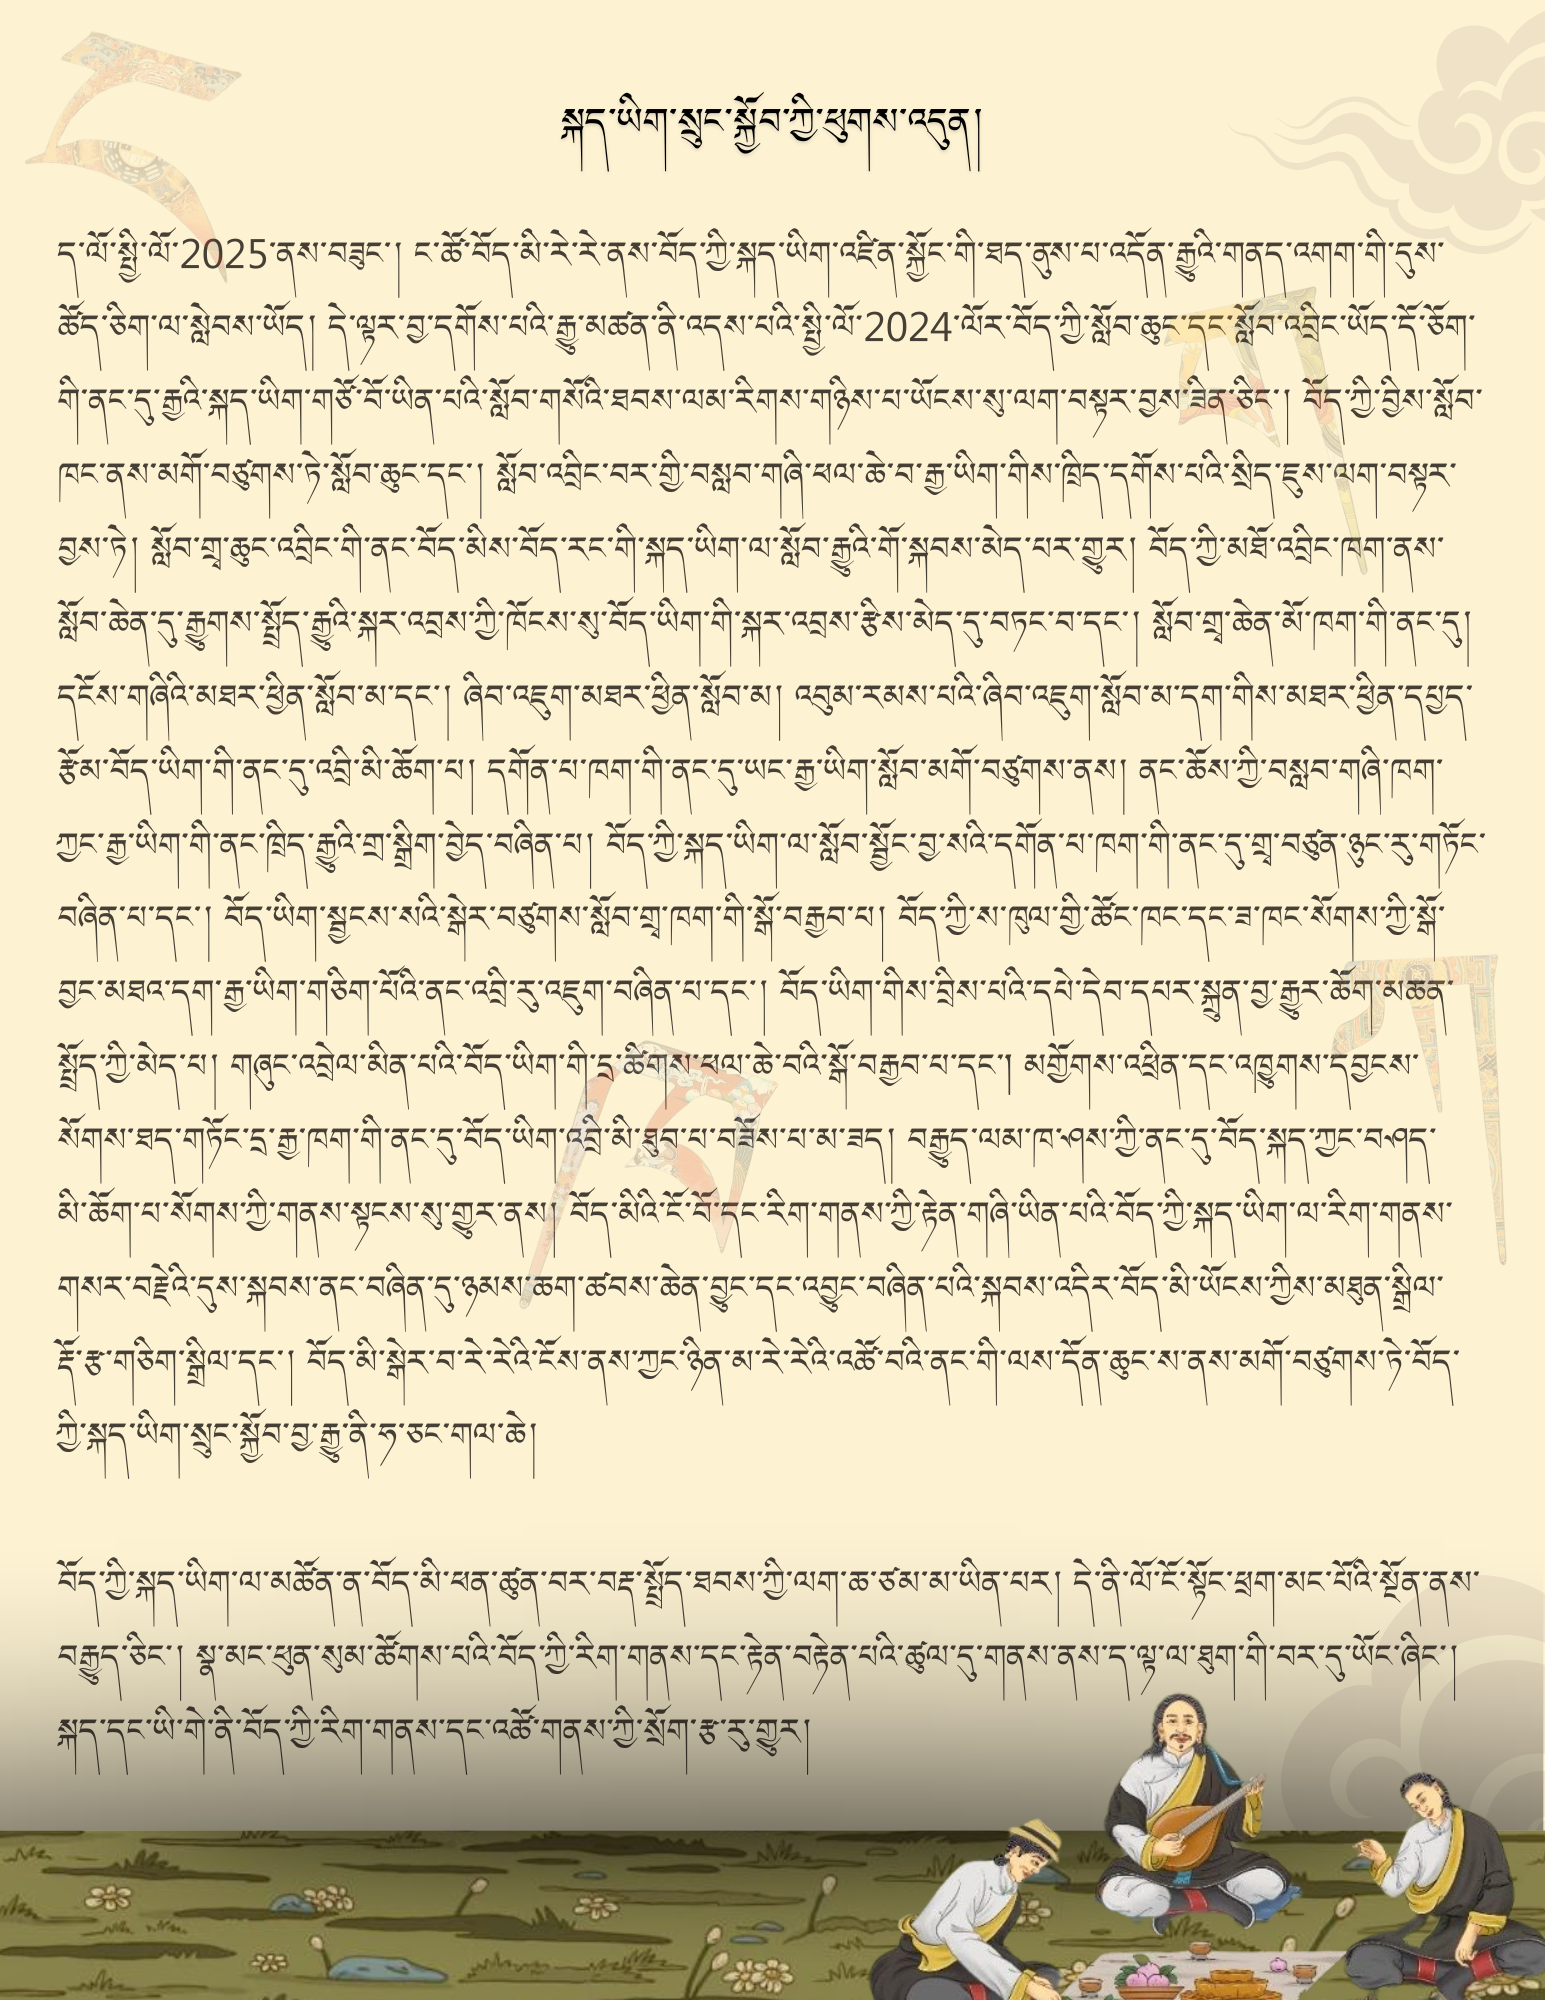 སྐད་ཡིག་སྲུང་སྐྱོབ་ཀྱི་ཕུགས་འདུན།
ད་ལོ་སྤྱི་ལོ་2025་ནས་བཟུང་། ང་ཚོ་བོད་མི་རེ་རེ་ནས་བོད་ཀྱི་སྐད་ཡིག་འཛིན་སྐྱོང་གི་ཐད་ནུས་པ་འདོན་རྒྱུའི་གནད་འགག་གི་དུས་
ཚོད་ཅིག་ལ་སླེབས་ཡོད།། དེ་ལྟར་བྱ་དགོས་པའི་རྒྱུ་མཚན་ནི་འདས་པའི་སྤྱི་ལོ་2024་ལོར་བོད་ཀྱི་སློབ་ཆུང་དང་སློབ་འབྲིང་ཡོད་དོ་ཅོག་
གི་ནང་དུ་རྒྱའི་སྐད་ཡིག་གཙོ་བོ་ཡིན་པའི་སློབ་གསོའི་ཐབས་ལམ་རིགས་གཉིས་པ་ཡོངས་སུ་ལག་བསྟར་བྱས་ཟིན་ཅིང་། བོད་ཀྱི་བྱིས་སློབ་
ཁང་ནས་མགོ་བཙུགས་ཏེ་སློབ་ཆུང་དང་། སློབ་འབྲིང་བར་གྱི་བསླབ་གཞི་ཕལ་ཆེ་བ་རྒྱ་ཡིག་གིས་ཁྲིད་དགོས་པའི་སྲིད་ཇུས་ལག་བསྟར་
བྱས་ཏེ། སློབ་གྲྭ་ཆུང་འབྲིང་གི་ནང་བོད་མིས་བོད་རང་གི་སྐད་ཡིག་ལ་སློབ་རྒྱུའི་གོ་སྐབས་མེད་པར་གྱུར། བོད་ཀྱི་མཐོ་འབྲིང་ཁག་ནས་
སློབ་ཆེན་དུ་རྒྱུགས་སྤྲོད་རྒྱུའི་སྐར་འབྲས་ཀྱི་ཁོངས་སུ་བོད་ཡིག་གི་སྐར་འབྲས་རྩིས་མེད་དུ་བཏང་བ་དང་། སློབ་གྲྭ་ཆེན་མོ་ཁག་གི་ནང་དུ།
དངོས་གཞིའི་མཐར་ཕྱིན་སློབ་མ་དང་། ཞིབ་འཇུག་མཐར་ཕྱིན་སློབ་མ། འབུམ་རམས་པའི་ཞིབ་འཇུག་སློབ་མ་དག་གིས་མཐར་ཕྱིན་དཔྱད་
རྩོམ་བོད་ཡིག་གི་ནང་དུ་འབྲི་མི་ཆོག་པ། དགོན་པ་ཁག་གི་ནང་དུ་ཡང་རྒྱ་ཡིག་སློབ་མགོ་བཙུགས་ནས། ནང་ཆོས་ཀྱི་བསླབ་གཞི་ཁག་
ཀྱང་རྒྱ་ཡིག་གི་ནང་ཁྲིད་རྒྱུའི་གྲ་སྒྲིག་བྱེད་བཞིན་པ། བོད་ཀྱི་སྐད་ཡིག་ལ་སློབ་སྦྱོང་བྱ་སའི་དགོན་པ་ཁག་གི་ནང་དུ་གྲྭ་བཙུན་ཉུང་རུ་གཏོང་
བཞིན་པ་དང་། བོད་ཡིག་སྦྱངས་སའི་སྒེར་བཙུགས་སློབ་གྲྭ་ཁག་གི་སྒོ་བརྒྱབ་པ། བོད་ཀྱི་ས་ཁུལ་གྱི་ཚོང་ཁང་དང་ཟ་ཁང་སོགས་ཀྱི་སྒོ་
བྱང་མཐའ་དག་རྒྱ་ཡིག་གཅིག་པོའི་ནང་འབྲི་རུ་འཇུག་བཞིན་པ་དང་། བོད་ཡིག་གིས་བྲིས་པའི་དཔེ་དེབ་དཔར་སྐྲུན་བྱ་རྒྱུར་ཆོག་མཆན་
སྤྲོད་ཀྱི་མེད་པ། གཞུང་འབྲེལ་མིན་པའི་བོད་ཡིག་གི་དྲ་ཚིགས་ཕལ་ཆེ་བའི་སྒོ་བརྒྱབ་པ་དང་། མགྱོགས་འཕྲིན་དང་འཁྱུགས་དབྱངས་
སོགས་ཐད་གཏོང་དྲ་རྒྱ་ཁག་གི་ནང་དུ་བོད་ཡིག་འབྲི་མི་ཐུབ་པ་བཟོས་པ་མ་ཟད། བརྒྱུད་ལམ་ཁ་ཤས་ཀྱི་ནང་དུ་བོད་སྐད་ཀྱང་བཤད་
མི་ཆོག་པ་སོགས་ཀྱི་གནས་སྟངས་སུ་གྱུར་ནས། བོད་མིའི་ངོ་བོ་དང་རིག་གནས་ཀྱི་རྟེན་གཞི་ཡིན་པའི་བོད་ཀྱི་སྐད་ཡིག་ལ་རིག་གནས་
གསར་བརྗེའི་དུས་སྐབས་ནང་བཞིན་དུ་ཉམས་ཆག་ཚབས་ཆེན་བྱུང་དང་འབྱུང་བཞིན་པའི་སྐབས་འདིར་བོད་མི་ཡོངས་ཀྱིས་མཐུན་སྒྲིལ་
རྡོ་རྩ་གཅིག་སྒྲིལ་དང་། བོད་མི་སྒེར་བ་རེ་རེའི་ངོས་ནས་ཀྱང་ཉིན་མ་རེ་རེའི་འཚོ་བའི་ནང་གི་ལས་དོན་ཆུང་ས་ནས་མགོ་བཙུགས་ཏེ་བོད་
ཀྱི་སྐད་ཡིག་སྲུང་སྐྱོབ་བྱ་རྒྱུ་ནི་ཧ་ཅང་གལ་ཆེ།
བོད་ཀྱི་སྐད་ཡིག་ལ་མཚོན་ན་བོད་མི་ཕན་ཚུན་བར་བརྡ་སྤྲོད་ཐབས་ཀྱི་ལག་ཆ་ཙམ་མ་ཡིན་པར། དེ་ནི་ལོ་ངོ་སྟོང་ཕྲག་མང་པོའི་སྔོན་ནས་
བརྒྱུད་ཅིང་། སྣ་མང་ཕུན་སུམ་ཚོགས་པའི་བོད་ཀྱི་རིག་གནས་དང་རྟེན་བརྟེན་པའི་ཚུལ་དུ་གནས་ནས་ད་ལྟ་ལ་ཐུག་གི་བར་དུ་ཡོང་ཞིང་།
སྐད་དང་ཡི་གེ་ནི་བོད་ཀྱི་རིག་གནས་དང་འཚོ་གནས་ཀྱི་སྲོག་རྩ་རུ་གྱུར།